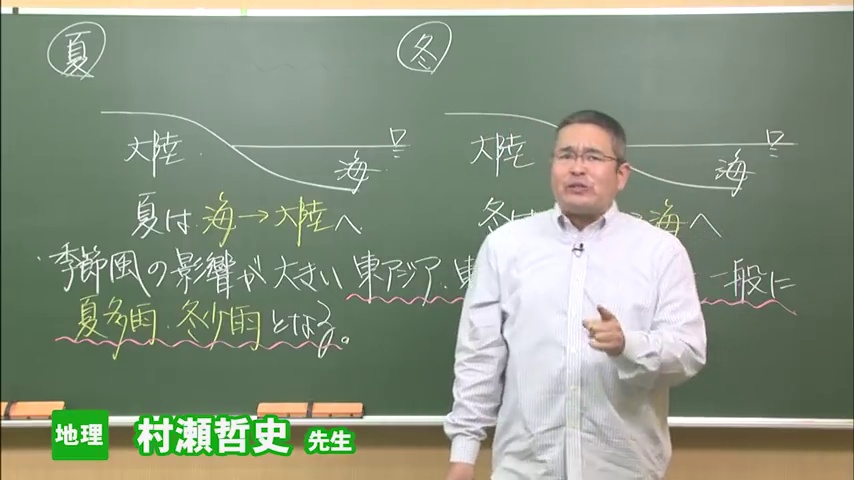 夏
冬
大陸
海
大陸
海
夏は 海→大陸へ
冬は 海へ
・季節風の影響が大きい東アジア・東 一般に
夏多雨・冬少雨となる。
地理 村瀬哲史 先生